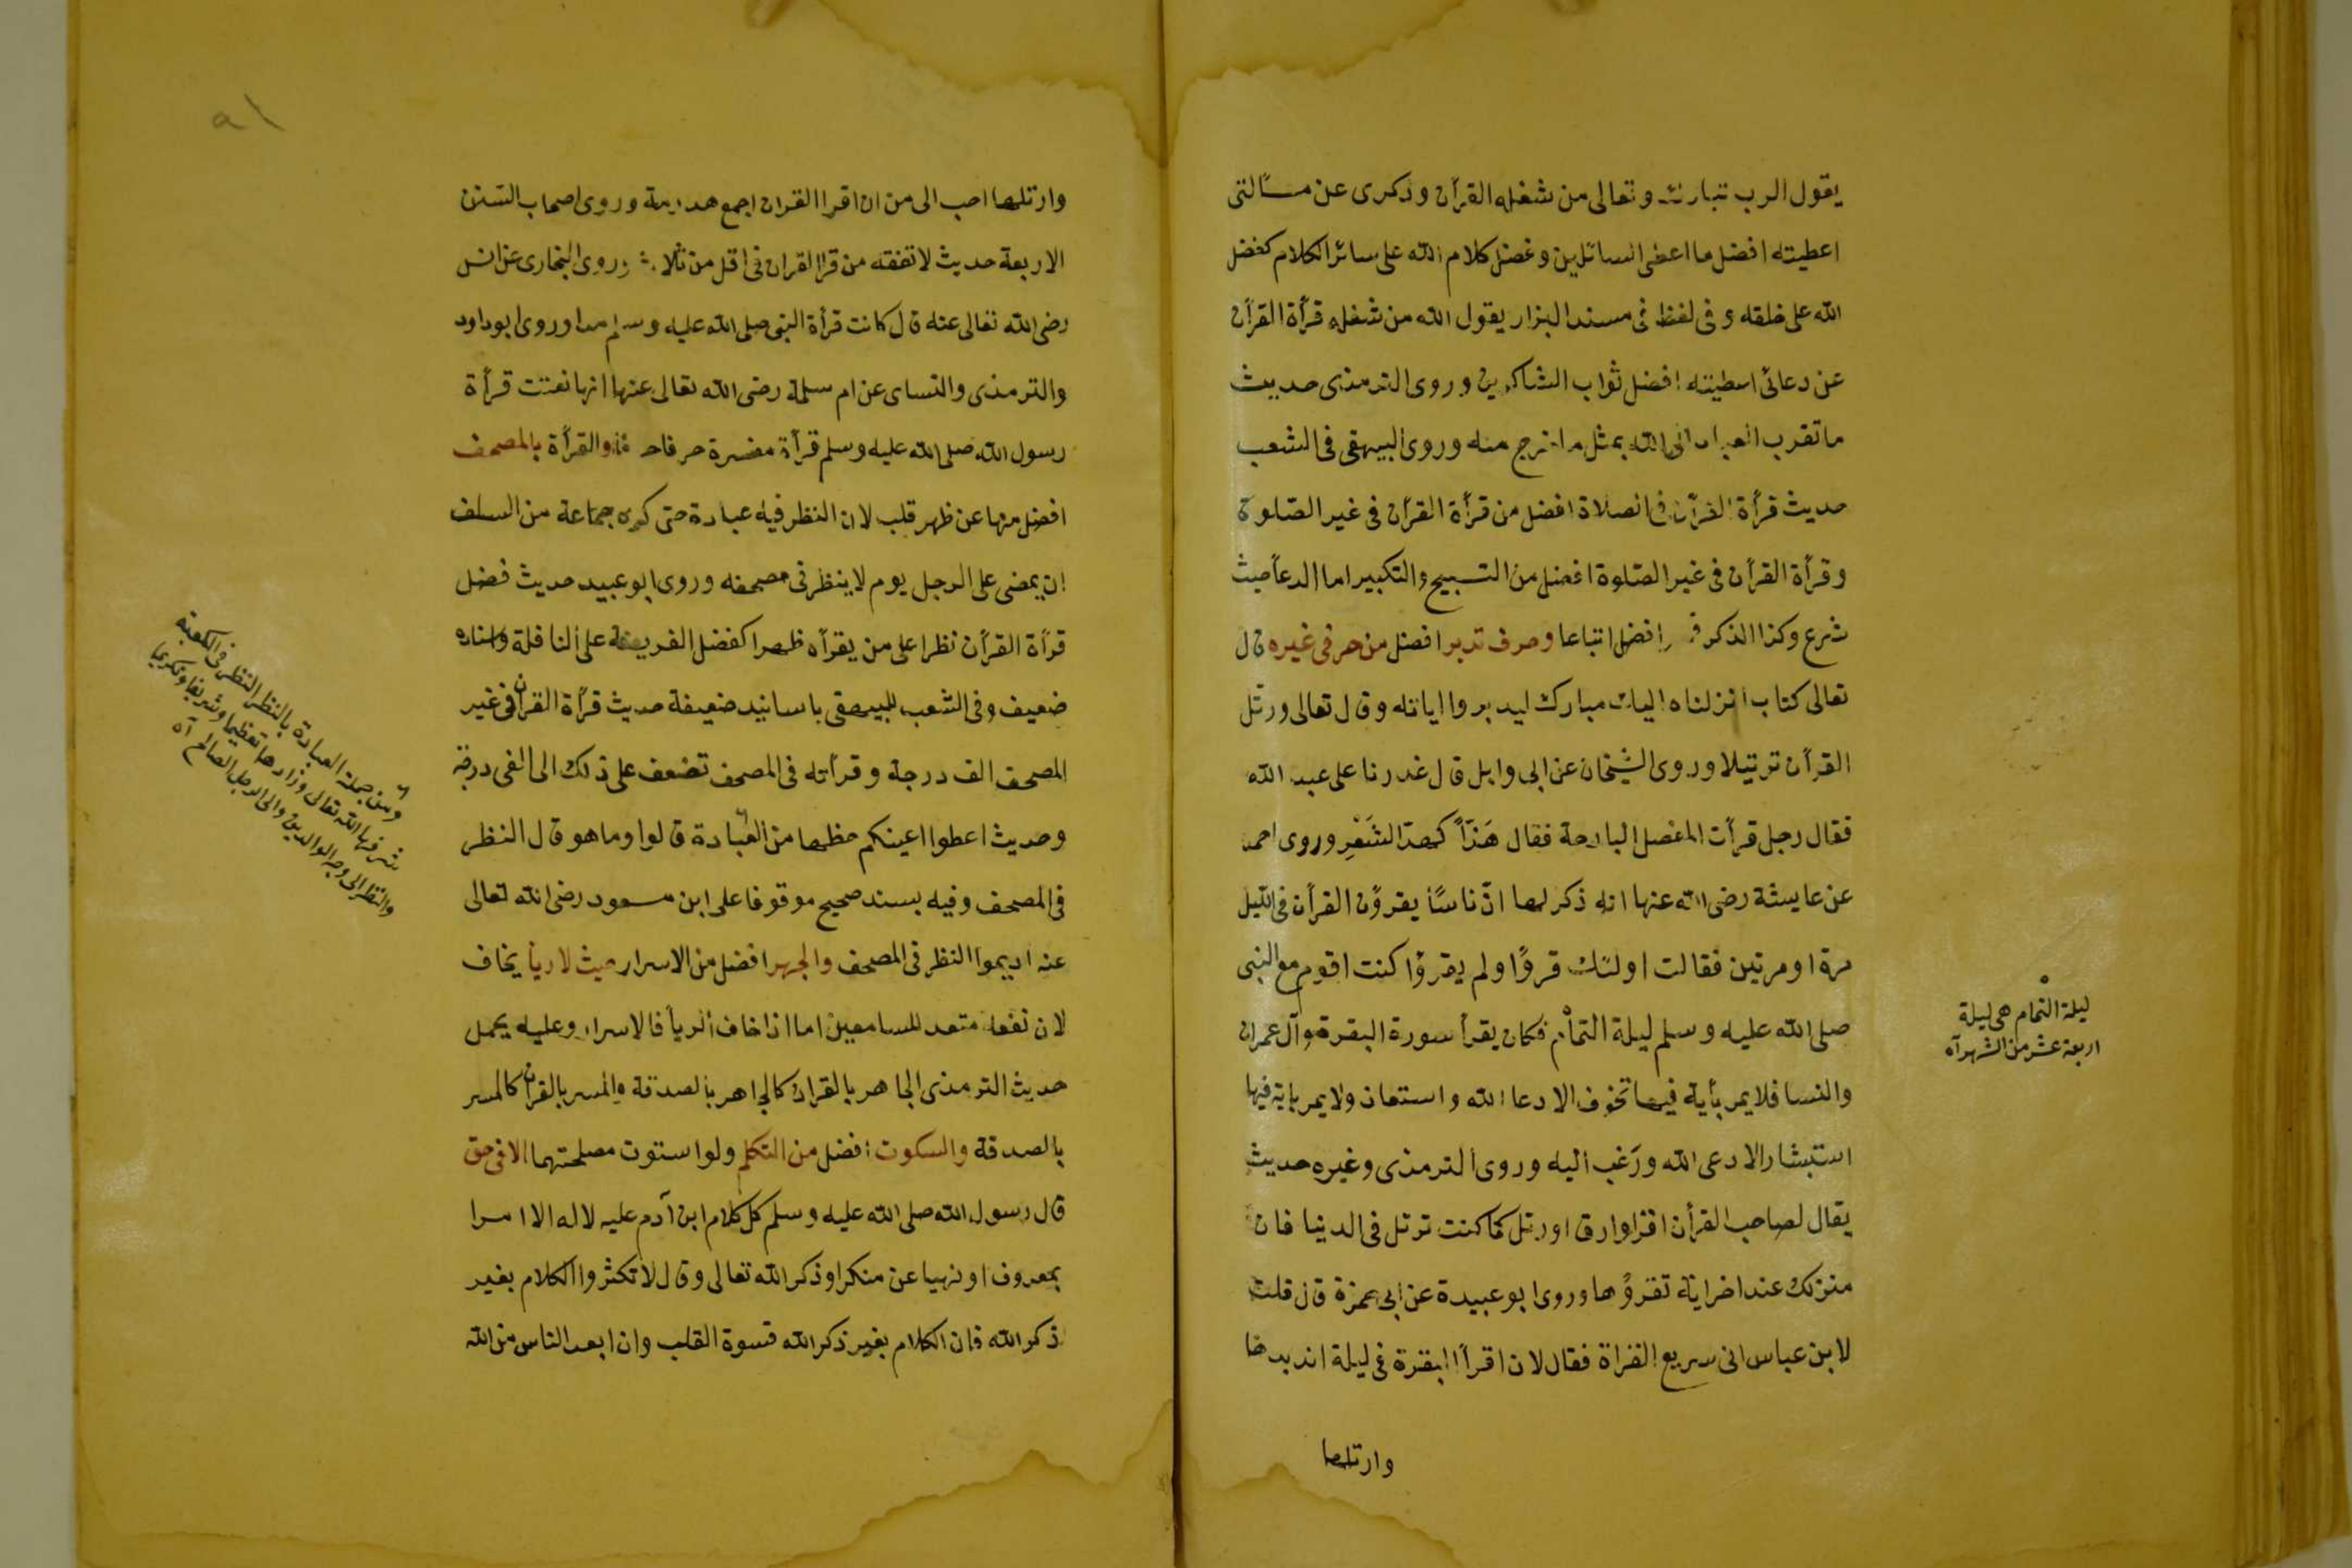 يقول الرب تبارك وتعالى من شغله القرآن وذكرى عن مسألتى
اعطيته افضل ما اعطى السائلين وفضل كلام الله على سائر الكلام كفضل
الله على خلقه وفى لفظ فى مسند البزار يقول الله من شغله قرأة القرآن
عن دعائى اعطيته افضل ثواب الشاكرين وروى الترمذى حديث
ما تقرب العباد الى الله بمثل ما خرج منه وروى البيهقى فى الشعب
حديث قرأة القرآن فى الصلاة افضل من قرأة القرآن فى غير الصّلوة
وقرأة القرآن فى غير الصّلوة افضل من التسبيح والتكبير اما الدعأ حيث
شرع وكذا الذكر افضل اتباعا وحرف تدبر افضل من حرفى غيره قال
تعالى كتاب انزلناه اليك مبارك ليدبروا اياته وقال تعالى ورتّل
القرآن ترتيلا وروى الشيخان عن ابى وايل قال غدرنا على عبد الله
فقال رجل قرأت المفصل البارحة فقال هَذّاً كهذّ الشَعْرِ وروى احمد
عن عايشة رضى الله عنها انه ذكر لها انّ ناسًا يقرؤن القرآن فى الليل
مرة او مرتين فقالت اولئك قرؤا ولم يقرؤا كنت اقوم مع النبى
صلى الله عليه وسلم ليلة التمام فكان يقرأ سورة البقرة وآل عمران
والنسا فلا يمر بأية فيها تخوف الا دعا الله واستعاذ ولا يمر باية فيها
استبشار الا دعى الله ورَغب اليه وروى الترمذى وغيره حديث
يقال لصاحب القرآن اقرا وارق اورتل كما كنت ترتل فى الدنيا فان
منزلك عند اخر اية تقرؤها وروى ابو عبيدة عن ابى حمزة قال قلت
لابن عباس انى سريع القراة فقال لان اقرأ البقرة فى ليلة اتدبرها
وارتلها
ليلة التمام هى ليلة
اربعة عشر من الشهر آه
٩١
وارتلها احب الى من ان اقرا القران اجمع هدرمة وروى اصحاب السنن
الاربعة حديث لا تفقه من قرا القران فى اقل من ثلاث وروى البخارى عن انس
رضى الله تعالى عنه قال كانت قرأة النبى صلى الله عليه وسلم مدا وروى ابو داود
والترمذى والنساى عن ام سلمة رضى الله تعالى عنها انها نعتت قرأة
رسول الله صلى الله عليه وسلم قرأة مفسرة حرفا حرفا والقرأة بالمصحف
افضل منها عن ظهر قلب لان النظر فيه عبادة حتى كره جماعة من السلف
ان يمضى على الرجل يوم لا ينظر فى مصحفه وروى ابو عبيد حديث فضل
قرأة القرآن نظرا على من يقرأه ظهرا كفضل الفريضة على النافلة واسناده
ضعيف وفى الشعب للبيهقى باسانيد ضعيفة حديث قرأة القران فى غير
المصحف الف درجة وقرأته فى المصحف تضعف على ذلك الى الفى درجة
وحديث اعطوا اعينكم حظها من العبادة قالوا وما هو قال النظر
فى المصحف وفيه بسند صحيح موقوفا على ابن مسعود رضى الله تعالى
عنه اديموا النظر فى المصحف والجهر افضل من الاسرار حيث لا ريأ يخاف
لان نفعه متعد للسامعين اما اذا خاف الريأ فالاسرار وعليه يحمل
حديث الترمذى الجاهر بالقران كالجاهر بالصدقة والمسر بالقران كالمسر
بالصدقة والسكوت افضل من التكلم ولو استوت مصلحتهما الا فى حق
قال رسول الله صلى الله عليه وسلم كل كلام ابن آدم عليه لا له الا امرا
بمعروف او نهيا عن منكر او ذكر الله تعالى وقال لا تكثروا الكلام بغير
ذكر الله فان الكلام بغير ذكر الله قسوة القلب وان ابعد الناس من الله
ومن جملة العبادة بالنظر النظر فى الكعبة
شرفها الله تعالى وزادها تعظيما وتشريفا وتكريما
والنظر الى وجه الوالدين والى الرجل الصالح آه